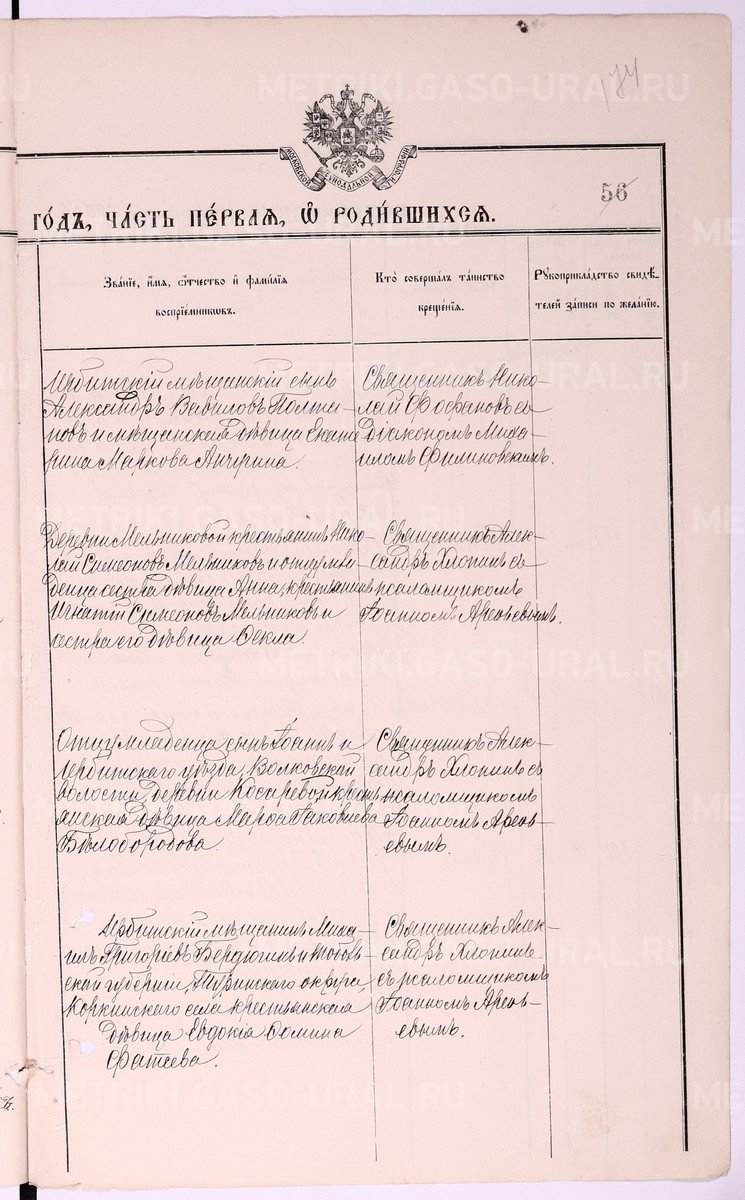 174
МОСКОВСКОЙ СѴНОДАЛЬНОЙ ТИПОГРАФІИ
56
ГО́ДЪ, ЧА́СТЬ ПЕ́РВАЯ, Ѽ РОДИ́ВШИХСЯ.
Зва́нїе, и҆́мя, ѻ҆́тчество и҆ фами́лїя
воспрїе́мникѡвъ.
Кто̀ соверша́лъ та́инство
креще́нїя.
Рꙋкоприкла́дство свидѣ́-
телей за́писи по жела́нїю.
Ирбитскій мѣщанскій сынъ
Александръ Вавиловъ Полта-
новъ и мѣщанская дѣвица Екате
рина Маркова Анчугина.
Священникъ Нико-
лай Фофановъ съ
діакономъ Миха-
иломъ Филиновскимъ.
Деревни Мельниковой крестьянинъ Нико-
лай Симеоновъ Мельниковъ и отцу мла-
денца сестра дѣвица Анна, крестьянинъ
Игнатій Симеоновъ Мельниковъ и
сестра его дѣвица Фекла.
Священникъ Алек-
сандръ Хлопинъ съ
псаломщикомъ
Іоанномъ Арефьевымъ.
Отцу младенца сынъ Іоаннъ и
Ирбитскаго уѣзда, Волковской
волости, деревни Косаревой кресть
янская дѣвица Марѳа Іаковлева
Бѣлобородова.
Священникъ Алек-
сандръ Хлопинъ съ
псаломщикомъ
Іоанномъ Арефь-
евымъ.
Ирбитскій мѣщанинъ Миха-
илъ Григорьевъ Бердюгинъ и Тоболь
ской губерніи, Туринскаго округа,
Коркинскаго села крестьянская
дѣвица Евдокія Фомина
Фатеева.
Священникъ Алек-
сандръ Хлопинъ
съ псаломщикомъ
Іоанномъ Арефь-
евымъ.
METRIKI.GASO-URAL.RU